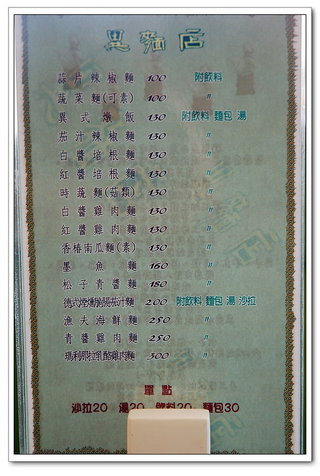 異麵店
蒜片辣椒麵 100 附飲料
蔬菜麵(可素) 100 〃
異式燉飯 130 附飲料 麵包 湯
茄汁辣椒麵 130 〃
白醬培根麵 130 〃
紅醬培根麵 130 〃
時蔬麵(菇類) 130 〃
白醬雞肉麵 130 〃
紅醬雞肉麵 130 〃
香椿南瓜麵(素) 130 〃
墨魚麵 160 〃
松子青醬麵 180 〃
德式煙燻香腸茄汁麵 200 附飲料 麵包 湯 沙拉
漁夫海鮮麵 250 〃
青醬雞肉麵 250 〃
瑪利那拉酪雞肉麵 300 〃
單點
沙拉20 湯20 飲料20 麵包30